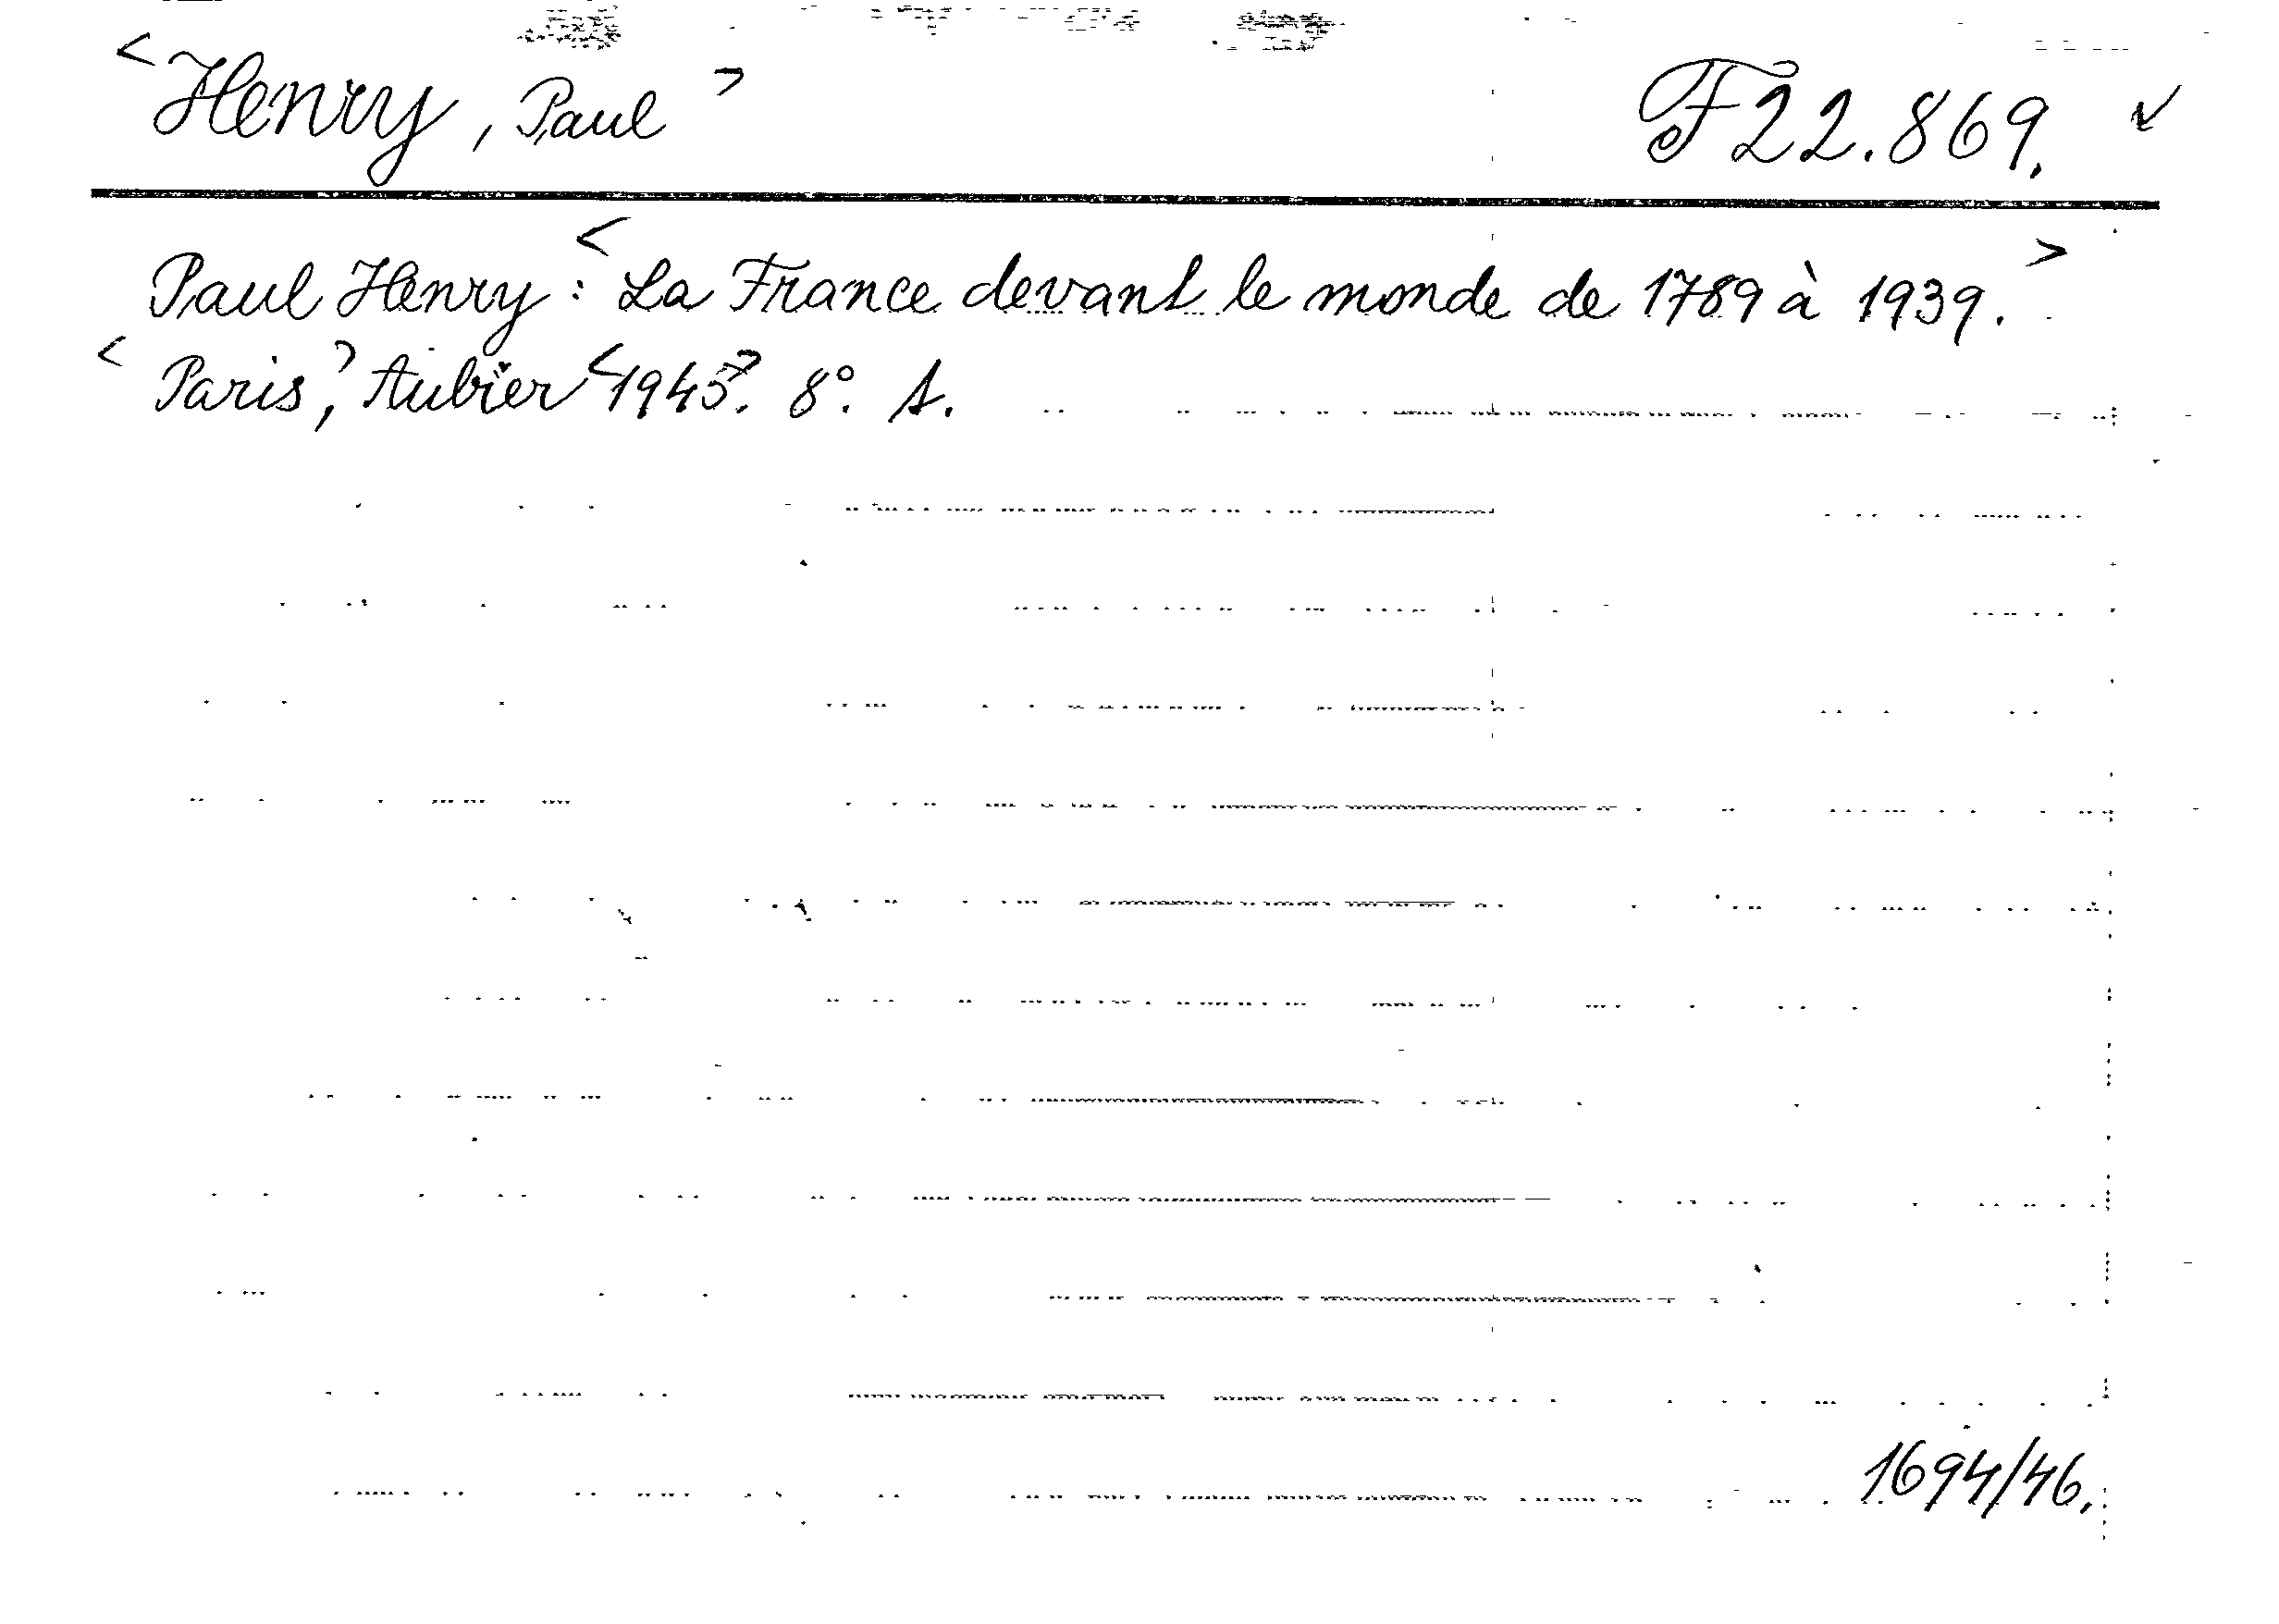 <Henry, Paul> F 22.869. ✓
Paul Henry: <La France devant le monde de 1789 à 1939.>
<Paris,> Aubier <1945>. 8°. A.
1694/46.